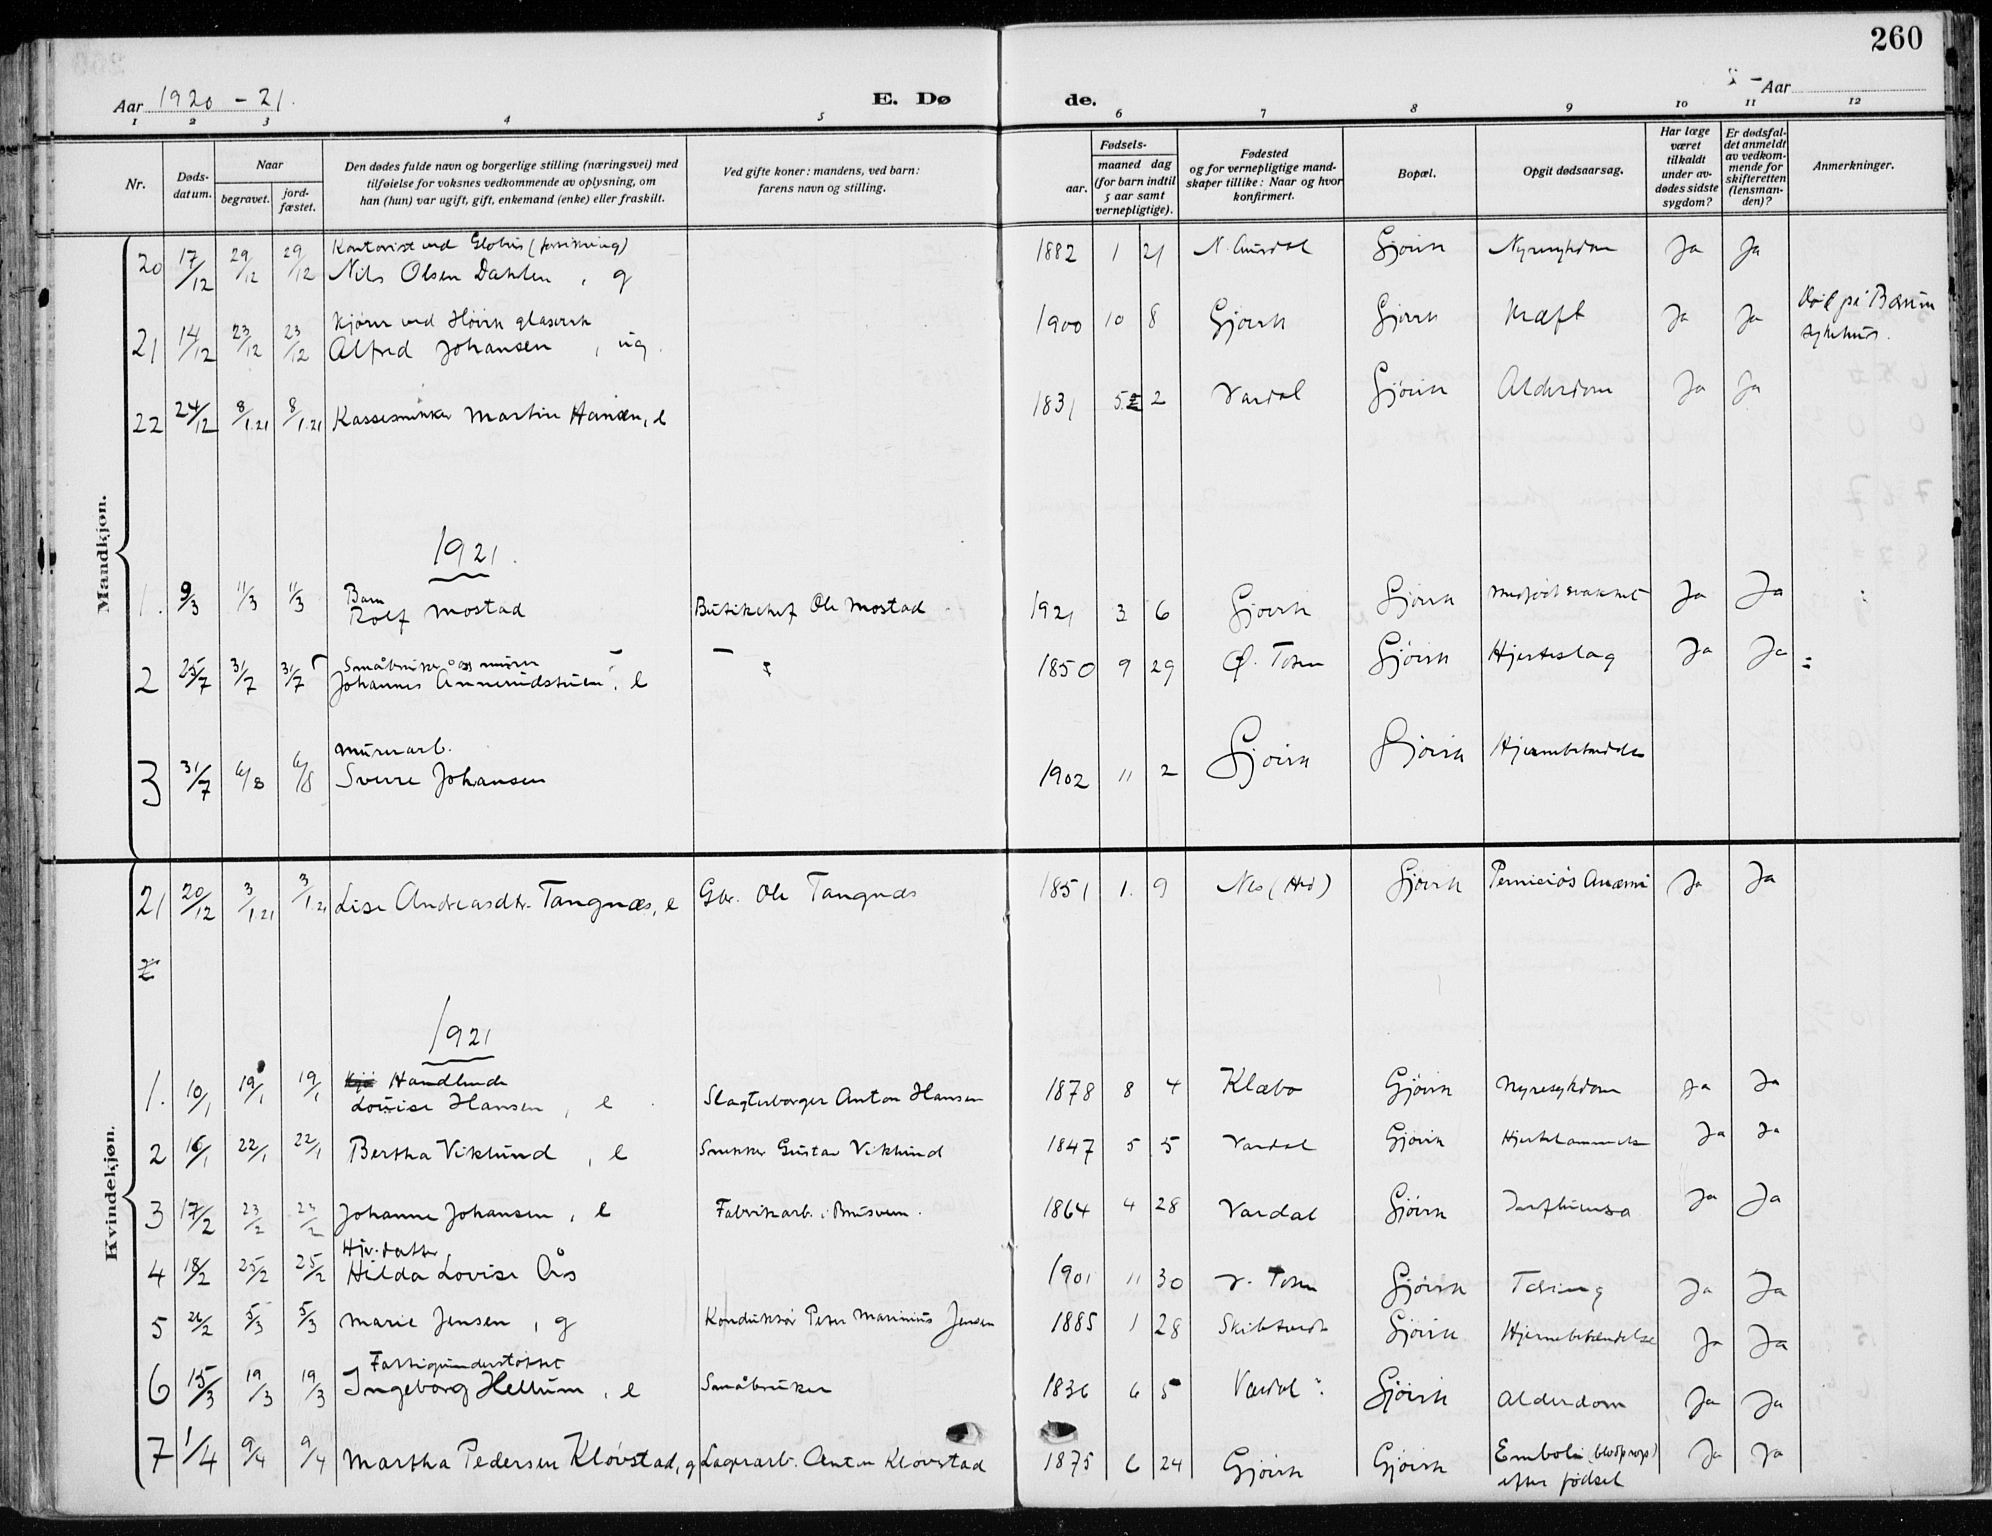 260
Aar 1920-21.
E. Dø
de.
Aar
1 2 3 4 5 6 7 8 9 10 11 12
Nr.
Døds-datum.
Naar
begravet.
jord-fæstet.
Den dødes fulde navn og borgerlige stilling (næringsvei) med
tilføielse for voksnes vedkommende av oplysning, om
han (hun) var ugift, gift, enkemand (enke) eller fraskilt.
Ved gifte koner: mandens, ved barn:
farens navn og stilling.
Fødsels-
aar.
maaned dag
(for barn indtil
5 aar samt
vernepligtige).
Fødested
og for vernepligtige mand-
skaper tillike: Naar og hvor
konfirmert.
Bopæl.
Opgit dødsaarsag.
Har læge
været
tilkaldt
under av-
dødes sidste
sygdom?
Er dødsfal-
det anmeldt
av vedkom-
mende for
skifteretten
(lensman-
den)?
Anmerkninger.
Mandkjøn.
Kontorist ved Globus (forsikring)
20 17/12 29/12 29/12 Nils Olsen Dahlen, g 1882 1 21 N. Aurdal Gjøvik Nyresykdom Ja Ja
Kjører ved Høvik glasverk
21 14/12 23/12 23/12 Alfred Johansen, ug. 1900 10 8 Gjøvik Gjøvik Kræft Ja Ja Død på Bærum
sykehus.
22 24/12 8/1.21 8/1.21 Kassesnikker Martin Hansen, e 1831 5 2 Vardal Gjøvik Alderdom Ja Ja
1921.
Barn
1. 9/3 11/3 11/3 Rolf Mostad Butikchef Ole Mostad 1921 3 6 Gjøvik Gjøvik Medfødt svakhet Ja Ja
Småbruker og murer
2 25/7 31/7 31/7 Johannes Annerudstuen, e 1850 9 29 Ø. Toten Gjøvik Hjerteslag Ja Ja
Murerarb.
3 31/7 6/8 6/8 Sverre Johansen 1902 11 2 Gjøvik Gjøvik
Kvindekjøn.
21 20/12 3/1.21 3/1.21 Lise Andreasdtr. Tangnæs, e Gbr. Ole Tangnæs 1851 1. 9 Nes (Hed) Gjøvik Perniciøs Anæmi Ja Ja
1921
Handlende
1. 10/1 19/1 19/1 Lovise Hansen, e Slagterborger Anton Hansen 1878 8 4 Klæbo Gjøvik Nyresykdom Ja Ja
2 16/1 22/1 22/1 Bertha Viklund, e Snekker Gustav Viklund 1847 5 5 Vardal Gjøvik Hjertelammelse Ja Ja
3 17/2 23/2 23/2 Johanne Johansen, e Fabrikarb. 1864 4 28 Vardal Gjøvik Ja Ja
Hjv. datter
4 18/2 25/2 25/2 Hilda Lovise Ås 1901 11 30 V. Toten Gjøvik Tæring Ja Ja
5 26/2 5/3 5/3 Marie Jensen, g Konduktør Peter Marinius Jensen 1885 1 28 Skibtvedt Gjøvik Hjernebetændelse Ja Ja
Fattigunderstøttet
6 15/3 19/3 19/3 Ingeborg Hellum, e Småbruker 1836 6 5 Vardal Gjøvik Alderdom Ja Ja
7 1/4 9/4 9/4 Martha Pedersen Kløvstad, g Lagerarb. Anton Kløvstad 1875 6 24 Gjøvik Gjøvik Emboli (blodprop) Ja Ja
efter fødsel